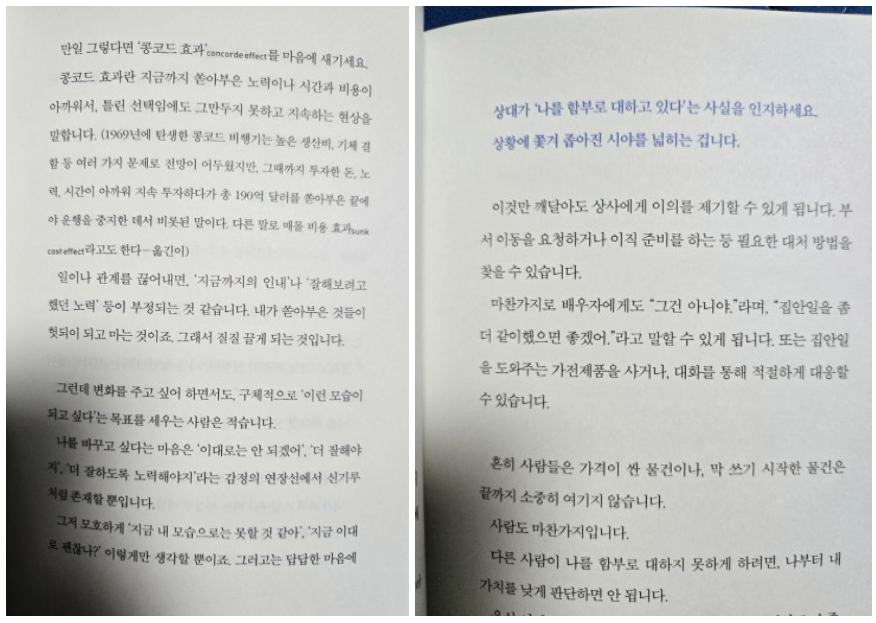 만일 그렇다면 ‘콩코드 효과’concorde effect를 마음에 새기세요.
콩코드 효과란 지금까지 쏟아부은 노력이나 시간과 비용이
아까워서, 틀린 선택임에도 그만두지 못하고 지속하는 현상을
말합니다. (1969년에 탄생한 콩코드 비행기는 높은 생산비, 기체 결
함 등 여러 가지 문제로 전망이 어두웠지만, 그때까지 투자한 돈, 노
력, 시간이 아까워 지속 투자하다가 총 190억 달러를 쏟아부은 끝에
야 운행을 중지한 데서 비롯된 말이다. 다른 말로 매몰 비용 효과sunk
cost effect라고도 한다–옮긴이)
일이나 관계를 끊어내면, ‘지금까지의 인내’나 ‘잘해보려고
했던 노력’ 등이 부정되는 것 같습니다. 내가 쏟아부은 것들이
헛되이 되고 마는 것이죠. 그래서 질질 끌게 되는 것입니다.
그런데 변화를 주고 싶어 하면서도, 구체적으로 ‘이런 모습이
되고 싶다’는 목표를 세우는 사람은 적습니다.
나를 바꾸고 싶다는 마음은 ‘이대로는 안 되겠어’, ‘더 잘해야
지’, ‘더 잘하도록 노력해야지’라는 감정의 연장선에서 신기루
처럼 존재할 뿐입니다.
그저 모호하게 ‘지금 내 모습으로는 못할 것 같아’, ‘지금 이대
로 괜찮나?’ 이렇게만 생각할 뿐이죠. 그러고는 답답한 마음에
상대가 ‘나를 함부로 대하고 있다’는 사실을 인지하세요.
상황에 쫓겨 좁아진 시야를 넓히는 겁니다.
이것만 깨달아도 상사에게 이의를 제기할 수 있게 됩니다. 부
서 이동을 요청하거나 이직 준비를 하는 등 필요한 대처 방법을
찾을 수 있습니다.
마찬가지로 배우자에게도 “그건 아니야.”라며, “집안일을 좀
더 같이했으면 좋겠어.”라고 말할 수 있게 됩니다. 또는 집안일
을 도와주는 가전제품을 사거나, 대화를 통해 적절하게 대응할
수 있습니다.
흔히 사람들은 가격이 싼 물건이나, 막 쓰기 시작한 물건은
끝까지 소중히 여기지 않습니다.
사람도 마찬가지입니다.
다른 사람이 나를 함부로 대하지 못하게 하려면, 나부터 내
가치를 낮게 판단하면 안 됩니다.